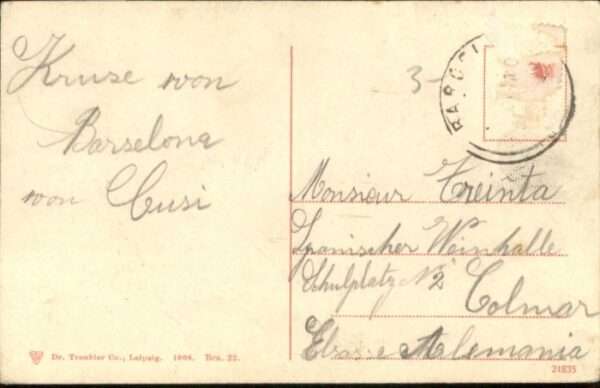 Kruse von
Barselona
von Cusi
3-
BARCEL
Monsieur Treinta
Spanischer Weinhalle
Schulplatz N 2
Colmar
Elsas e Alemania
Dr. Trenkler Co., Leipzig. 1908. Bra. 22.
21835